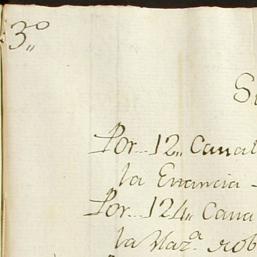 3º
Por.. 12,, Canal
la Enancia
Por.. 124,, Cana
la Haz.ª rob